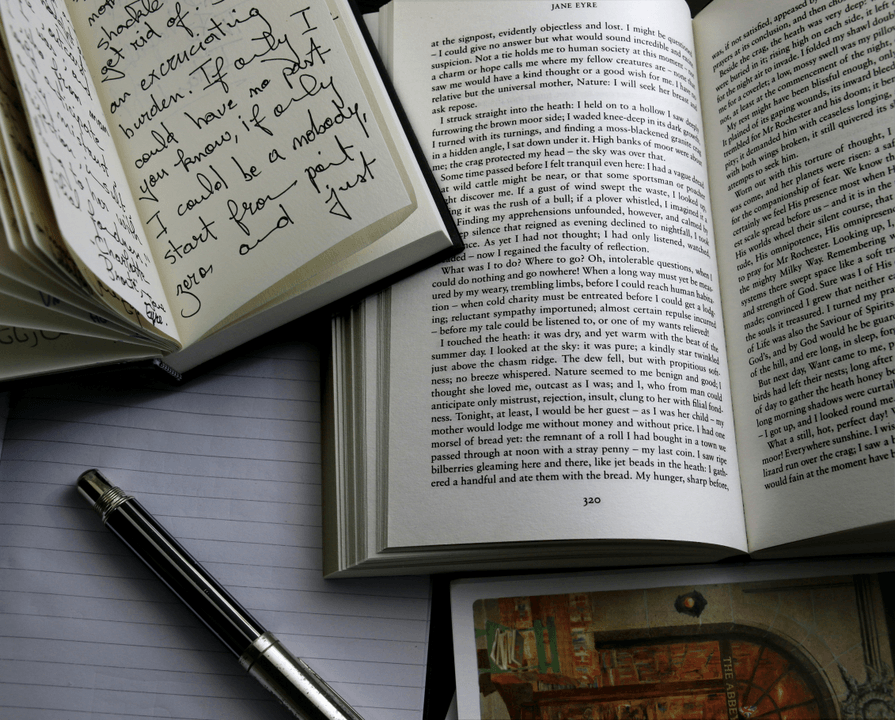 shackle
get rid of.
an excruciating
burden. If only I
could have no past
you know, if only
I could be a nobody,
start from point
zero and just
JANE EYRE
at the signpost, evidently objectless and lost. I might be questioned
– I could give no answer but what would sound incredible and
suspicion. Not a tie holds me to human society at this moment –
a charm or hope calls me where my fellow creatures are – none
saw me would have a kind thought or a good wish for me. I have
relative but the universal mother, Nature: I will seek her breast and
ask repose.
I struck straight into the heath: I held on to a hollow I saw deeply
furrowing the brown moor side; I waded knee-deep in its dark growth;
I turned with its turnings, and finding a moss-blackened granite crag
in a hidden angle, I sat down under it. High banks of moor were about
me; the crag protected my head – the sky was over that.
Some time passed before I felt tranquil even here: I had a vague dread
at wild cattle might be near, or that some sportsman or poacher
might discover me. If a gust of wind swept the waste, I looked up,
ing it was the rush of a bull; if a plover whistled, I imagined it a
Finding my apprehensions unfounded, however, and calmed by
silence that reigned as evening declined to nightfall, I took
As yet I had not thought; I had only listened, watched,
– now I regained the faculty of reflection.
What was I to do? Where to go? Oh, intolerable questions, when I
could do nothing and go nowhere! When a long way must yet be meas-
ured by my weary, trembling limbs, before I could reach human habita-
tion – when cold charity must be entreated before I could get a lodg-
ing; reluctant sympathy importuned; almost certain repulse incurred
– before my tale could be listened to, or one of my wants relieved!
I touched the heath: it was dry, and yet warm with the beat of the
summer day. I looked at the sky: it was pure; a kindly star twinkled
just above the chasm ridge. The dew fell, but with propitious soft-
ness; no breeze whispered. Nature seemed to me benign and good; I
thought she loved me, outcast as I was; and I, who from man could
anticipate only mistrust, rejection, insult, clung to her with filial fond-
ness. Tonight, at least, I would be her guest – as I was her child – my
mother would lodge me without money and without price. I had one
morsel of bread yet: the remnant of a roll I had bought in a town we
passed through at noon with a stray penny – my last coin. I saw ripe
bilberries gleaming here and there, like jet beads in the heath: I gath-
ered a handful and ate them with the bread. My hunger, sharp before,
320
was, if not satisfied, appeased by
prayers at its conclusion, and then chose
Beside the crag, the heath was very deep:
were buried in it; rising high on each side, it left
for the night air to invade. I folded my shawl
for a coverlet; a low, mossy swell was my pillow
not, at least at the commencement of the night
My rest might have been blissful enough, only
It plained of its gaping wounds, its inward bleeding
trembled for Mr Rochester and his doom; it
pity; it demanded him with ceaseless longing
with both wings broken, it still quivered its
attempts to seek him.
Worn out with this torture of thought
was come, and her planets were risen: a safe
for the companionship of fear. We know
certainly we feel His presence most when
est scale spread before us – and it is in the
His worlds wheel their silent course, that
tude, His omnipotence, His omnipresence
to pray for Mr Rochester. Looking up, I
the mighty Milky Way. Remembering
systems there swept space like a soft
and strength of God. Sure was I of His
made; convinced I grew that neither
the souls it treasured. I turned my prayer
of Life was also the Saviour of Spirits
God's, and by God would he be guarded
of the hill, and ere long, in sleep, forgot
But next day, Want came to me,
birds had left their nests; long after
of day to gather the heath honey
long morning shadows were curtailed
– I got up, and I looked round me
What a still, hot, perfect day!
moor! Everywhere sunshine. I wished
lizard run over the crag; I saw a
would fain at the moment have
THE ABBE